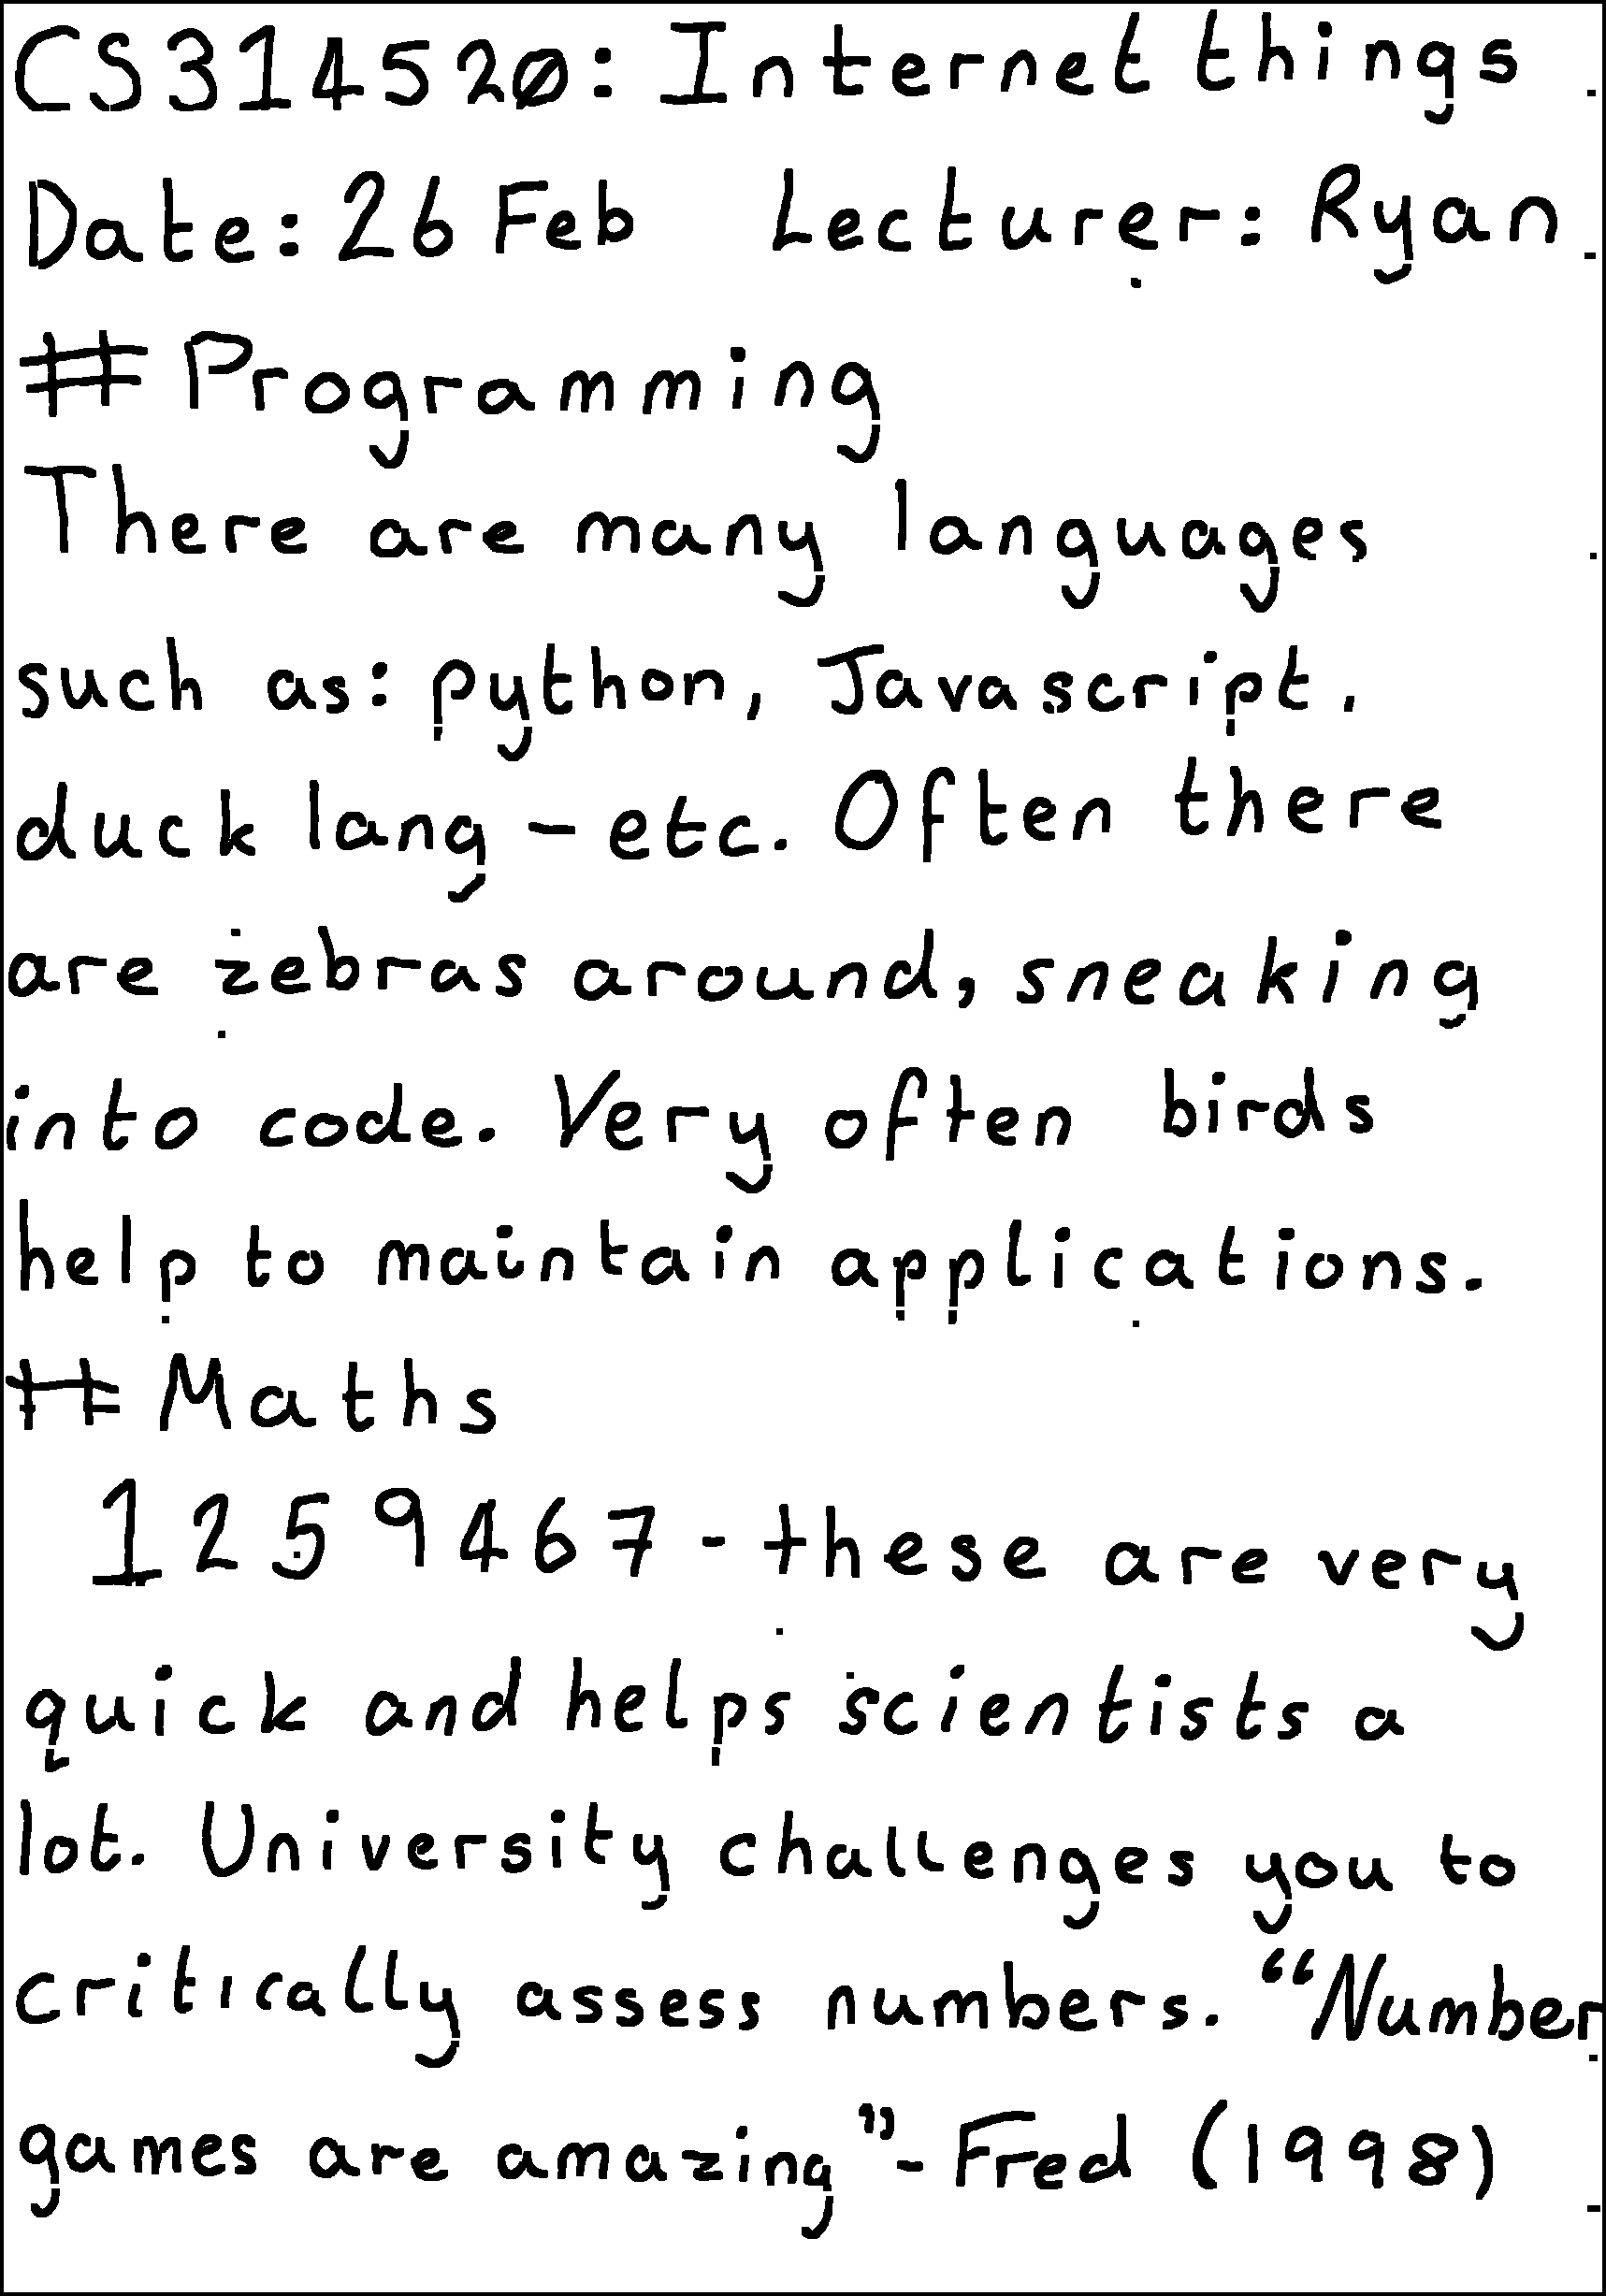 CS314520: Internet things
Date: 26 Feb Lecturer: Ryan
# Programming
There are many languages
such as: python, Javascript,
duck lang - etc. Often there
are zebras around, sneaking
into code. Very often birds
help to maintain applications.
# Maths
1259467 - these are very
quick and helps scientists a
lot. University challenges you to
critically assess numbers. “Number
games are amazing” - Fred (1998)